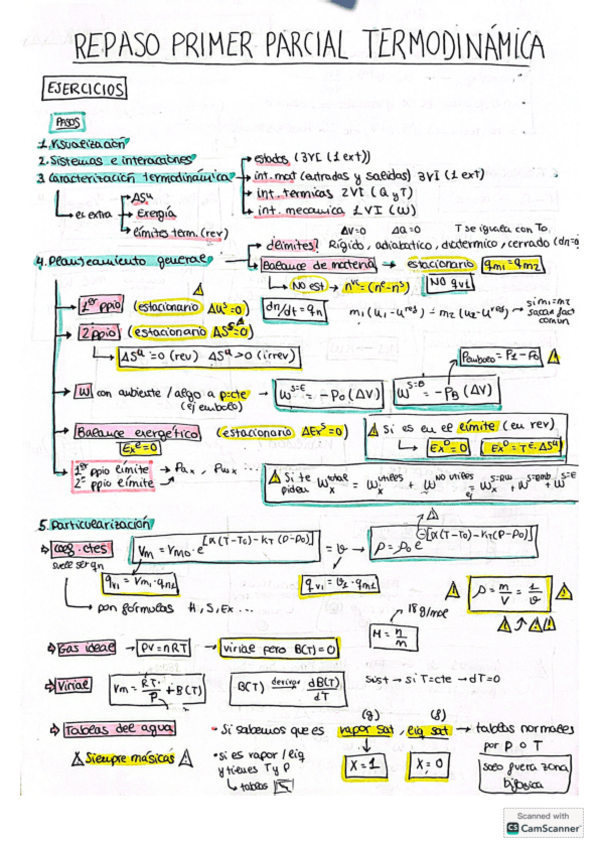 REPASO PRIMER PARCIAL TERMODINÁMICA
EJERCICIOS
PASOS
1. Visualización
2. Sistemas e interacciones
3. Caracterización termodinámica
→ estados (3VI (1 ext))
→ int. mat (entradas y salidas) 3VI (1 ext)
→ int. termicas 2VI (Q y T)
→ int. mecanica 1VI (W)
→ es extra
→ ΔSu
→ exergía
→ límites term. (rev)
ΔV=0 ΔQ=0 T se iguala con To
4. Planteamiento general
→ ¿límites? Rígido, adiabatico, diatermico, cerrado (dn=0
→ Balance de materia → estacionario qm1=qm2
→ No est → nvc=(ne-ns) NO qv1
→ 1er ppio (estacionario ΔUS=0) dn/dt=qn m1(u1-uref) - m2(u2-uref) → si m1=m2 sacar fact común
→ 2 ppio (estacionario ΔSS=0)
→ ΔSu=0 (rev) ΔSu>0 (irrev)
Pembolo=P1-P0
→ W con ambiente / algo a p=cte (ej embolo) → WS=E=-P0(ΔV) WS=B=-PB(ΔV)
→ Balance exergético (estacionario ΔExS=0)
ExE=0
Si es en el límite (en rev)
→ ExD=0 ExD=TE·ΔSu
→ 1er ppio límite
2º ppio límite
→ Pax, Pux ...
Si te piden Wxtotal = Wxutiles + WNO utiles = Wx + W + WS=E
5. Particularización
→ coef. ctes
suele ser qn
Vm = Vm0·e[α(T-T0)-kT(P-P0)] = v → ρ=ρ0 e-[α(T-T0)-kT(P-P0)]
qv1=Vm1·qn1 qv1=v1·qm1
ρ=m/V=1/v
→ pon fórmulas H, S, Ex ...
18 g/mol
M=n/m
→ Gas ideal → PV=nRT → virial pero B(T)=0
→ Virial Vm=R·T/P+B(T) B(T) derivar dB(T)/dT sust → si T=cte → dT=0
→ Tablas del agua
• Si sabemos que es vapor sat (g), liq sat (l) → tablas normales por P o T
Siempre másicas
• si es vapor/liq y tienes T y P
→ tablas
X=1 X=0
solo fuera zona bifásica
Scanned with
CS CamScanner